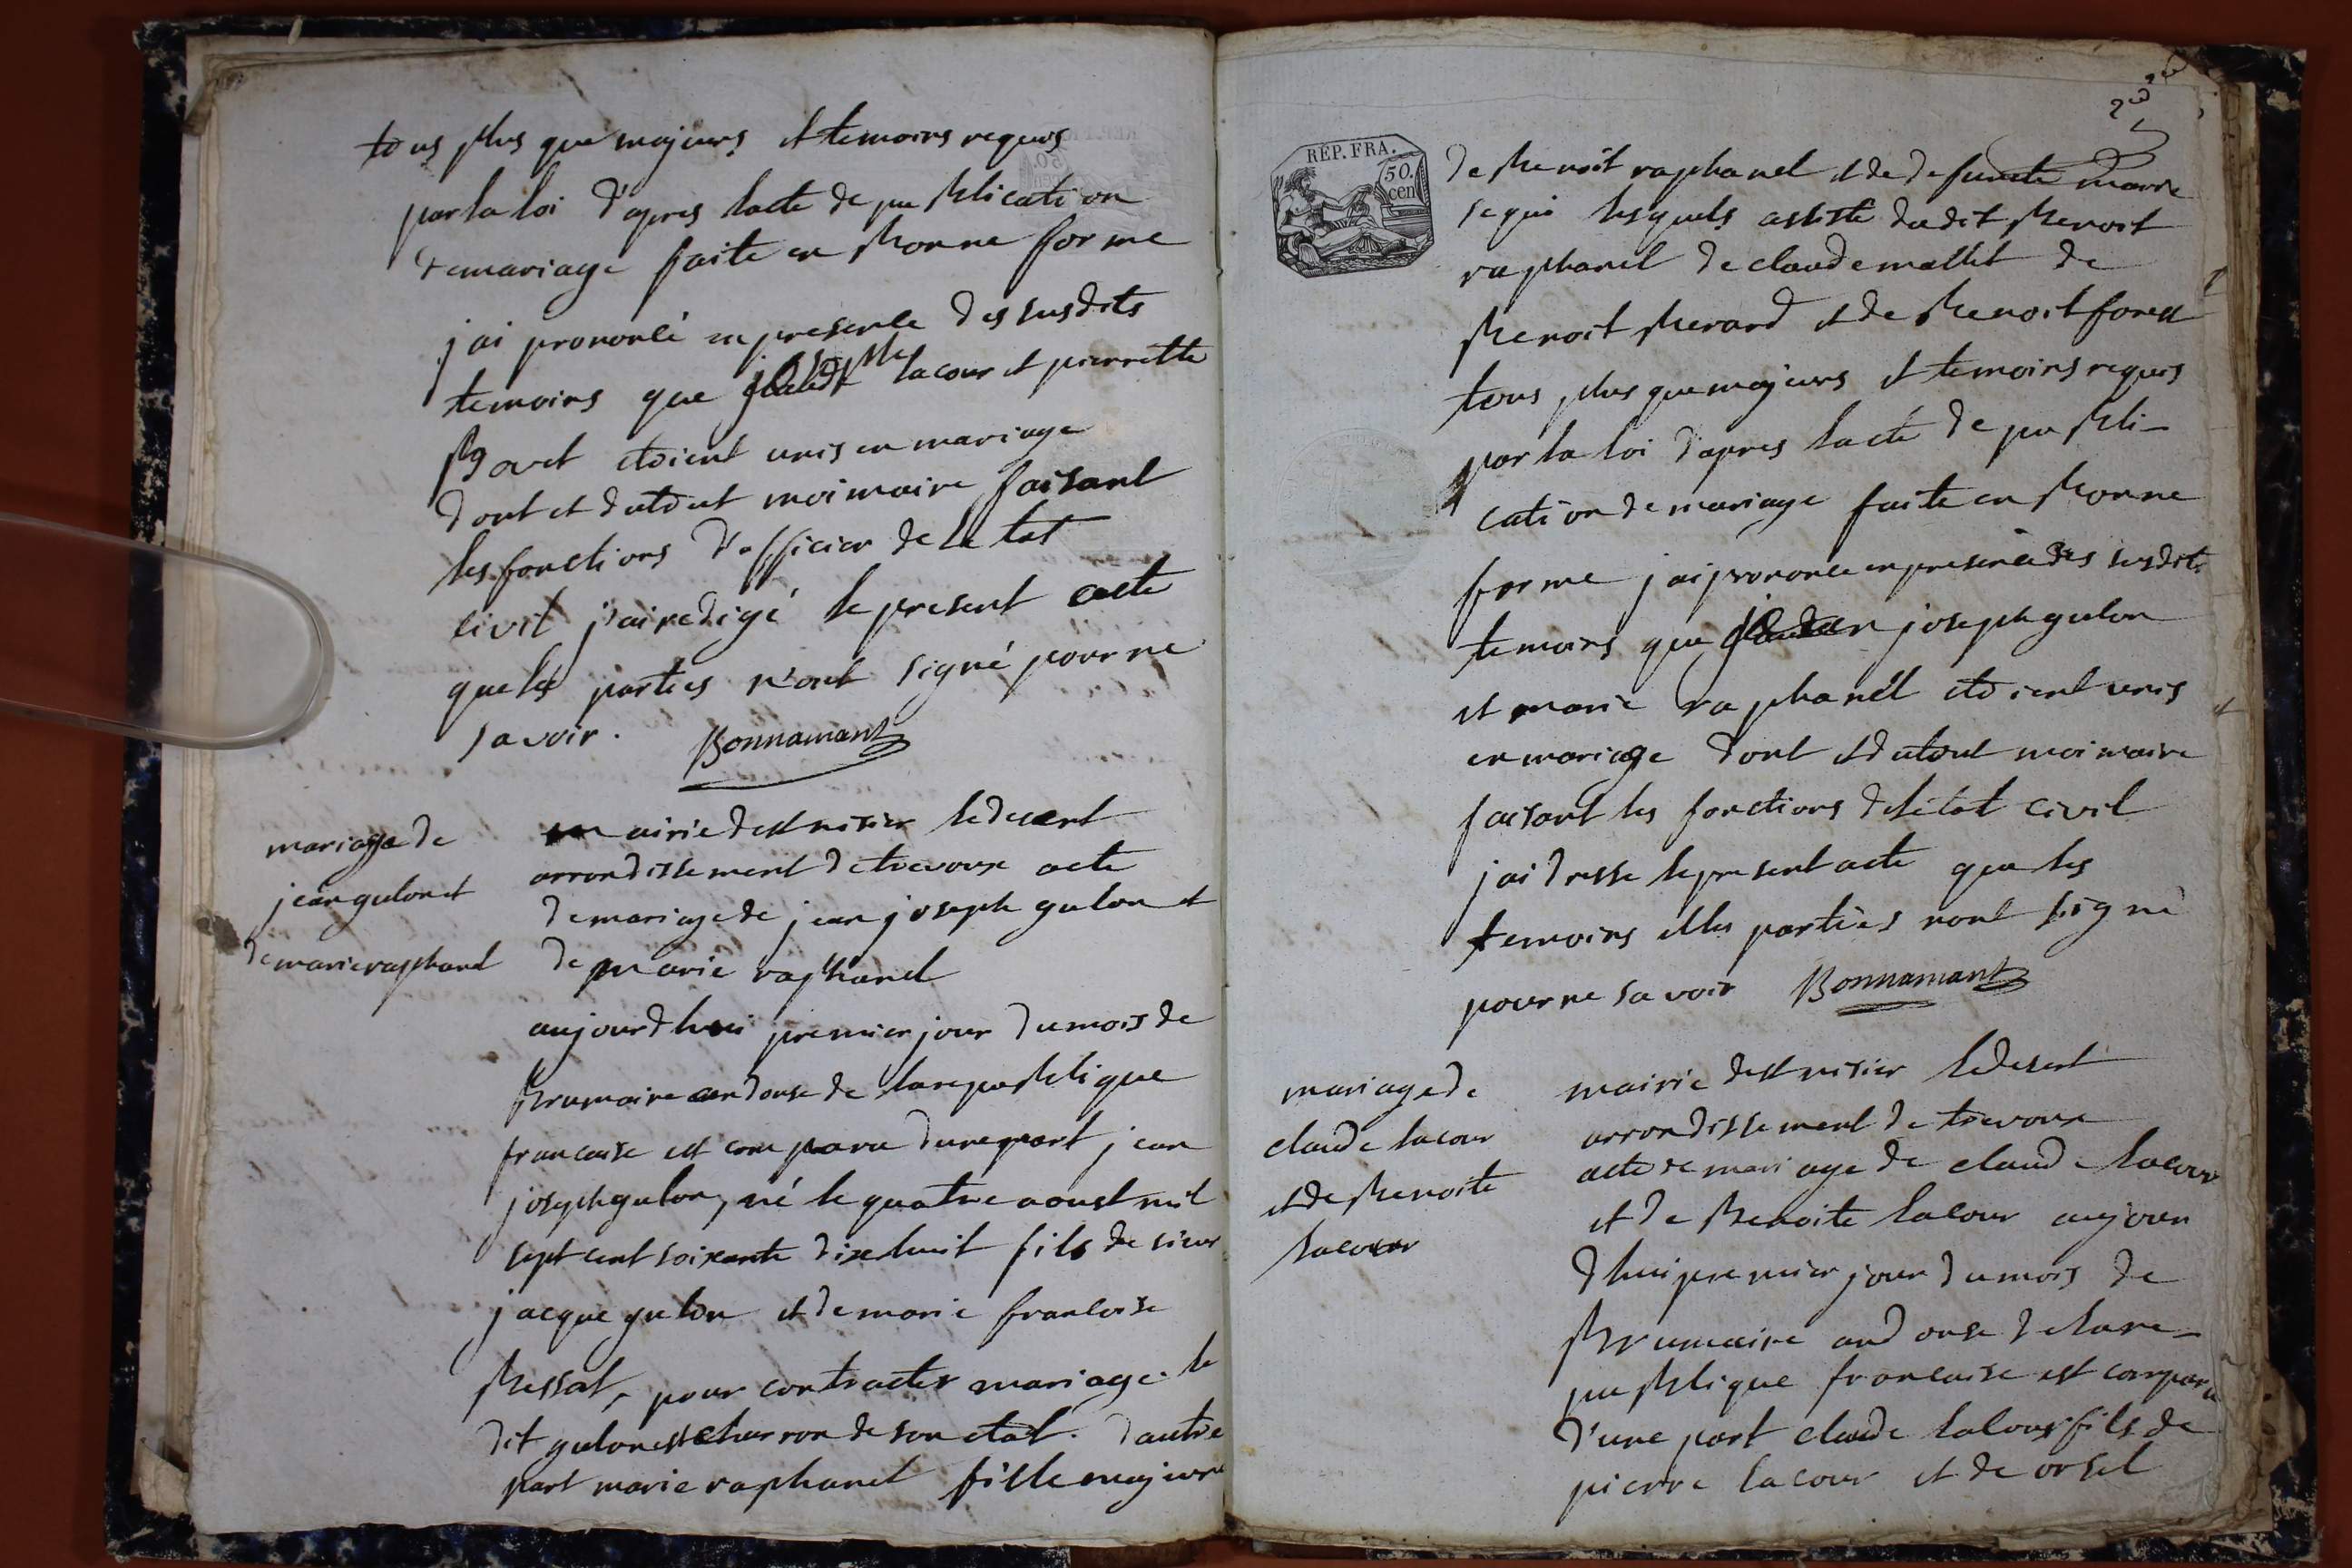 tous plus que majeurs et temoins requis
par la loi d'apres lacte de publication
de mariage faite en bonne forme
j'ai prononcé en presence des susdits
temoins que lacour et pierrette
Bovet etoient unis en mariage
dont et dutout moi maire faisant
les fonctions d'officier de letat
civil j'ai redigé le present acte
que les parties n'ont signé pour ne
savoir. Bonnamant
mariage de
jean gulon et
de marie raphanel
mairie de st nisier le desert
arrondissement de trevoux acte
de mariage de jean joseph gulon et
de marie raphanel
aujourdhui premier jour du mois de
brumaire an donse de la republique
francaise est comparu dune part jean
joseph gulon, né le quatre aoust mil
sept cent soixante dixhuit fils de sieur
jacque gulon et de marie francoise
Bessat, pour contracter mariage. le
dit gulon est charron de son etat. dautre
part marie raphanel fille majeure
REP. FRA.
50.
cen
de Benoit raphanel et de defuncte marie
sequi lesquels assisté dudit Benoit
raphanel de claude mallet de
Benoit Berard et de Benoit forest
tous plus que majeurs et temoins requis
par la loi d'apres lacte de publi-
cation de mariage faite en bonne
forme j'ai prononcé en presence des susdits
temoins que joseph gulon
et marie raphanel etoient unis
en mariage dont et dutout moi maire
faisant les fonctions de létat civil
jai dressé le present acte que les
temoins et les parties nont signé
pour ne savoir Bonnamant
mariage de
claude lacour
et de Benoite
lacour
mairie de st nisier le desert
arrondissement de trevoux
acte de mariage de claude lacour
et de Benoite lacour aujour
dhui premier jour du mois de
Brumaire an donse de la re-
publique francaise est comparu
d'une part claude lacour fils de
pierre lacour et de orsel